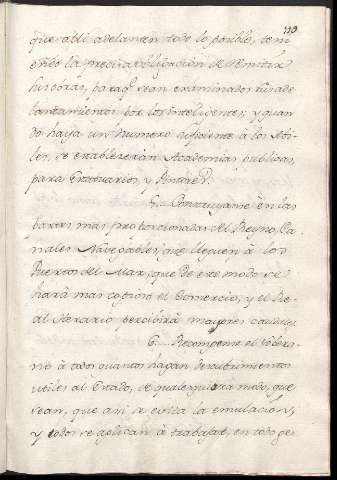 119
que alli adelanten todo lo posible, teni
endo la precisa obligacion de remitir
sus obras, para q.e sean examinados sus ade
lantamientos por los inteligentes; y quan
do haya un numero suficiente â los Abi
les, se estableserán Academias publicas,
para Estatuarios, y Pintores.
5. Construyanse ên las
partes mas proporcionadas del Reyno, Ca
nales Navegables, que lleguen â los
Puertos del Mar, que de este modo se
hará mas copioso el Comercio, y el Re
al Herario percibirá mayores caudales.
6. Recompense el Sobera
no â todos quantos hagan descubrimientos
utiles al Estado, de qualesquiera modo, que
sean, que asi se exita la emulacion,
y todos se aplican â trabajar, en todo ge